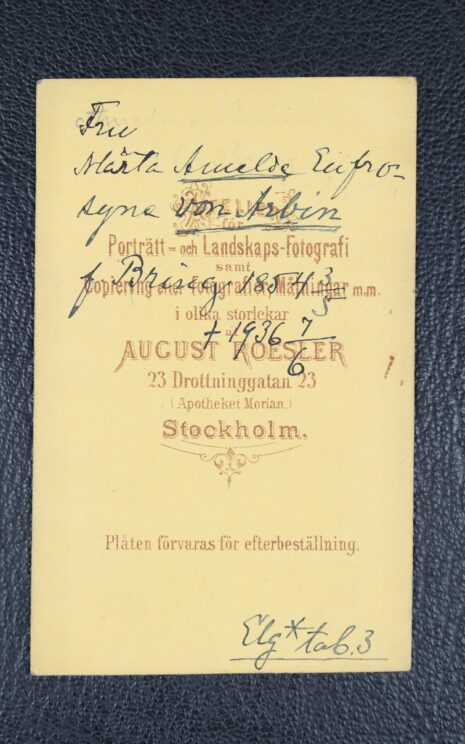 Fru
Märta Amelde Eufro-
syne von Arbin
ATELIER
för
Porträtt- och Landskaps-Fotografi
samt
f. Briseg 1854 3/5
Copiering efter fotografier, Målningar m.m.
i olika storlekar
† 1936 7/6
af
AUGUST ROESLER
23 Drottninggatan 23
(Apotheket Morian.)
Stockholm.
Plåten förvaras för efterbeställning.
Elg* tab. 3